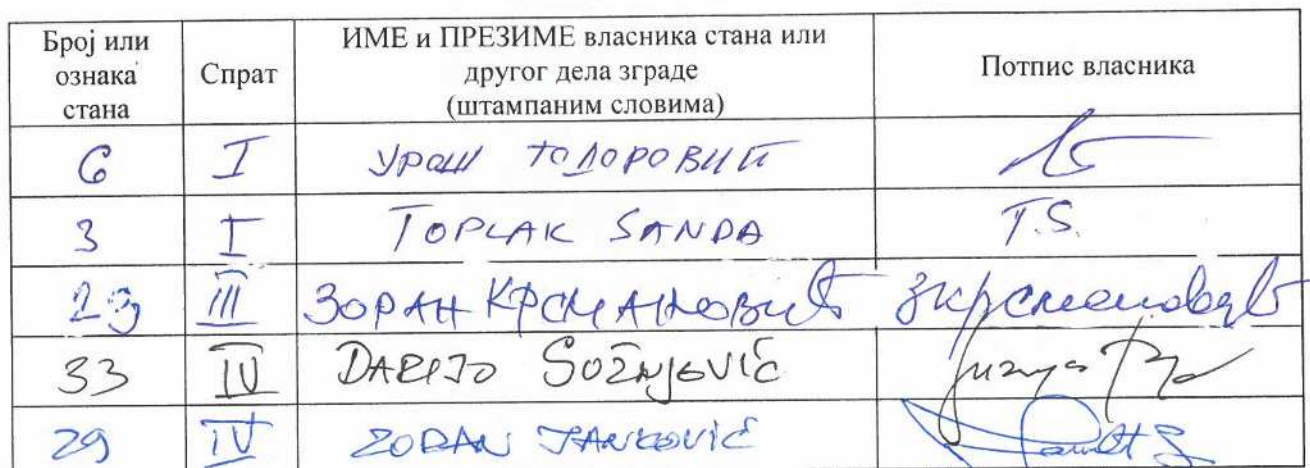 Број или
ознака
стана
Спрат
ИМЕ и ПРЕЗИМЕ власника стана или
другог дела зграде
(штампаним словима)
Потпис власника
6 I УРОШ ТОДОРОВИЋ
3 I TOPLAK SANDA T.S.
23 III ЗОРАН КРСМАНОВИЋ ЗКрсмановић
33 IV DARIJO
29 IV ZORAN JANKOVIĆ